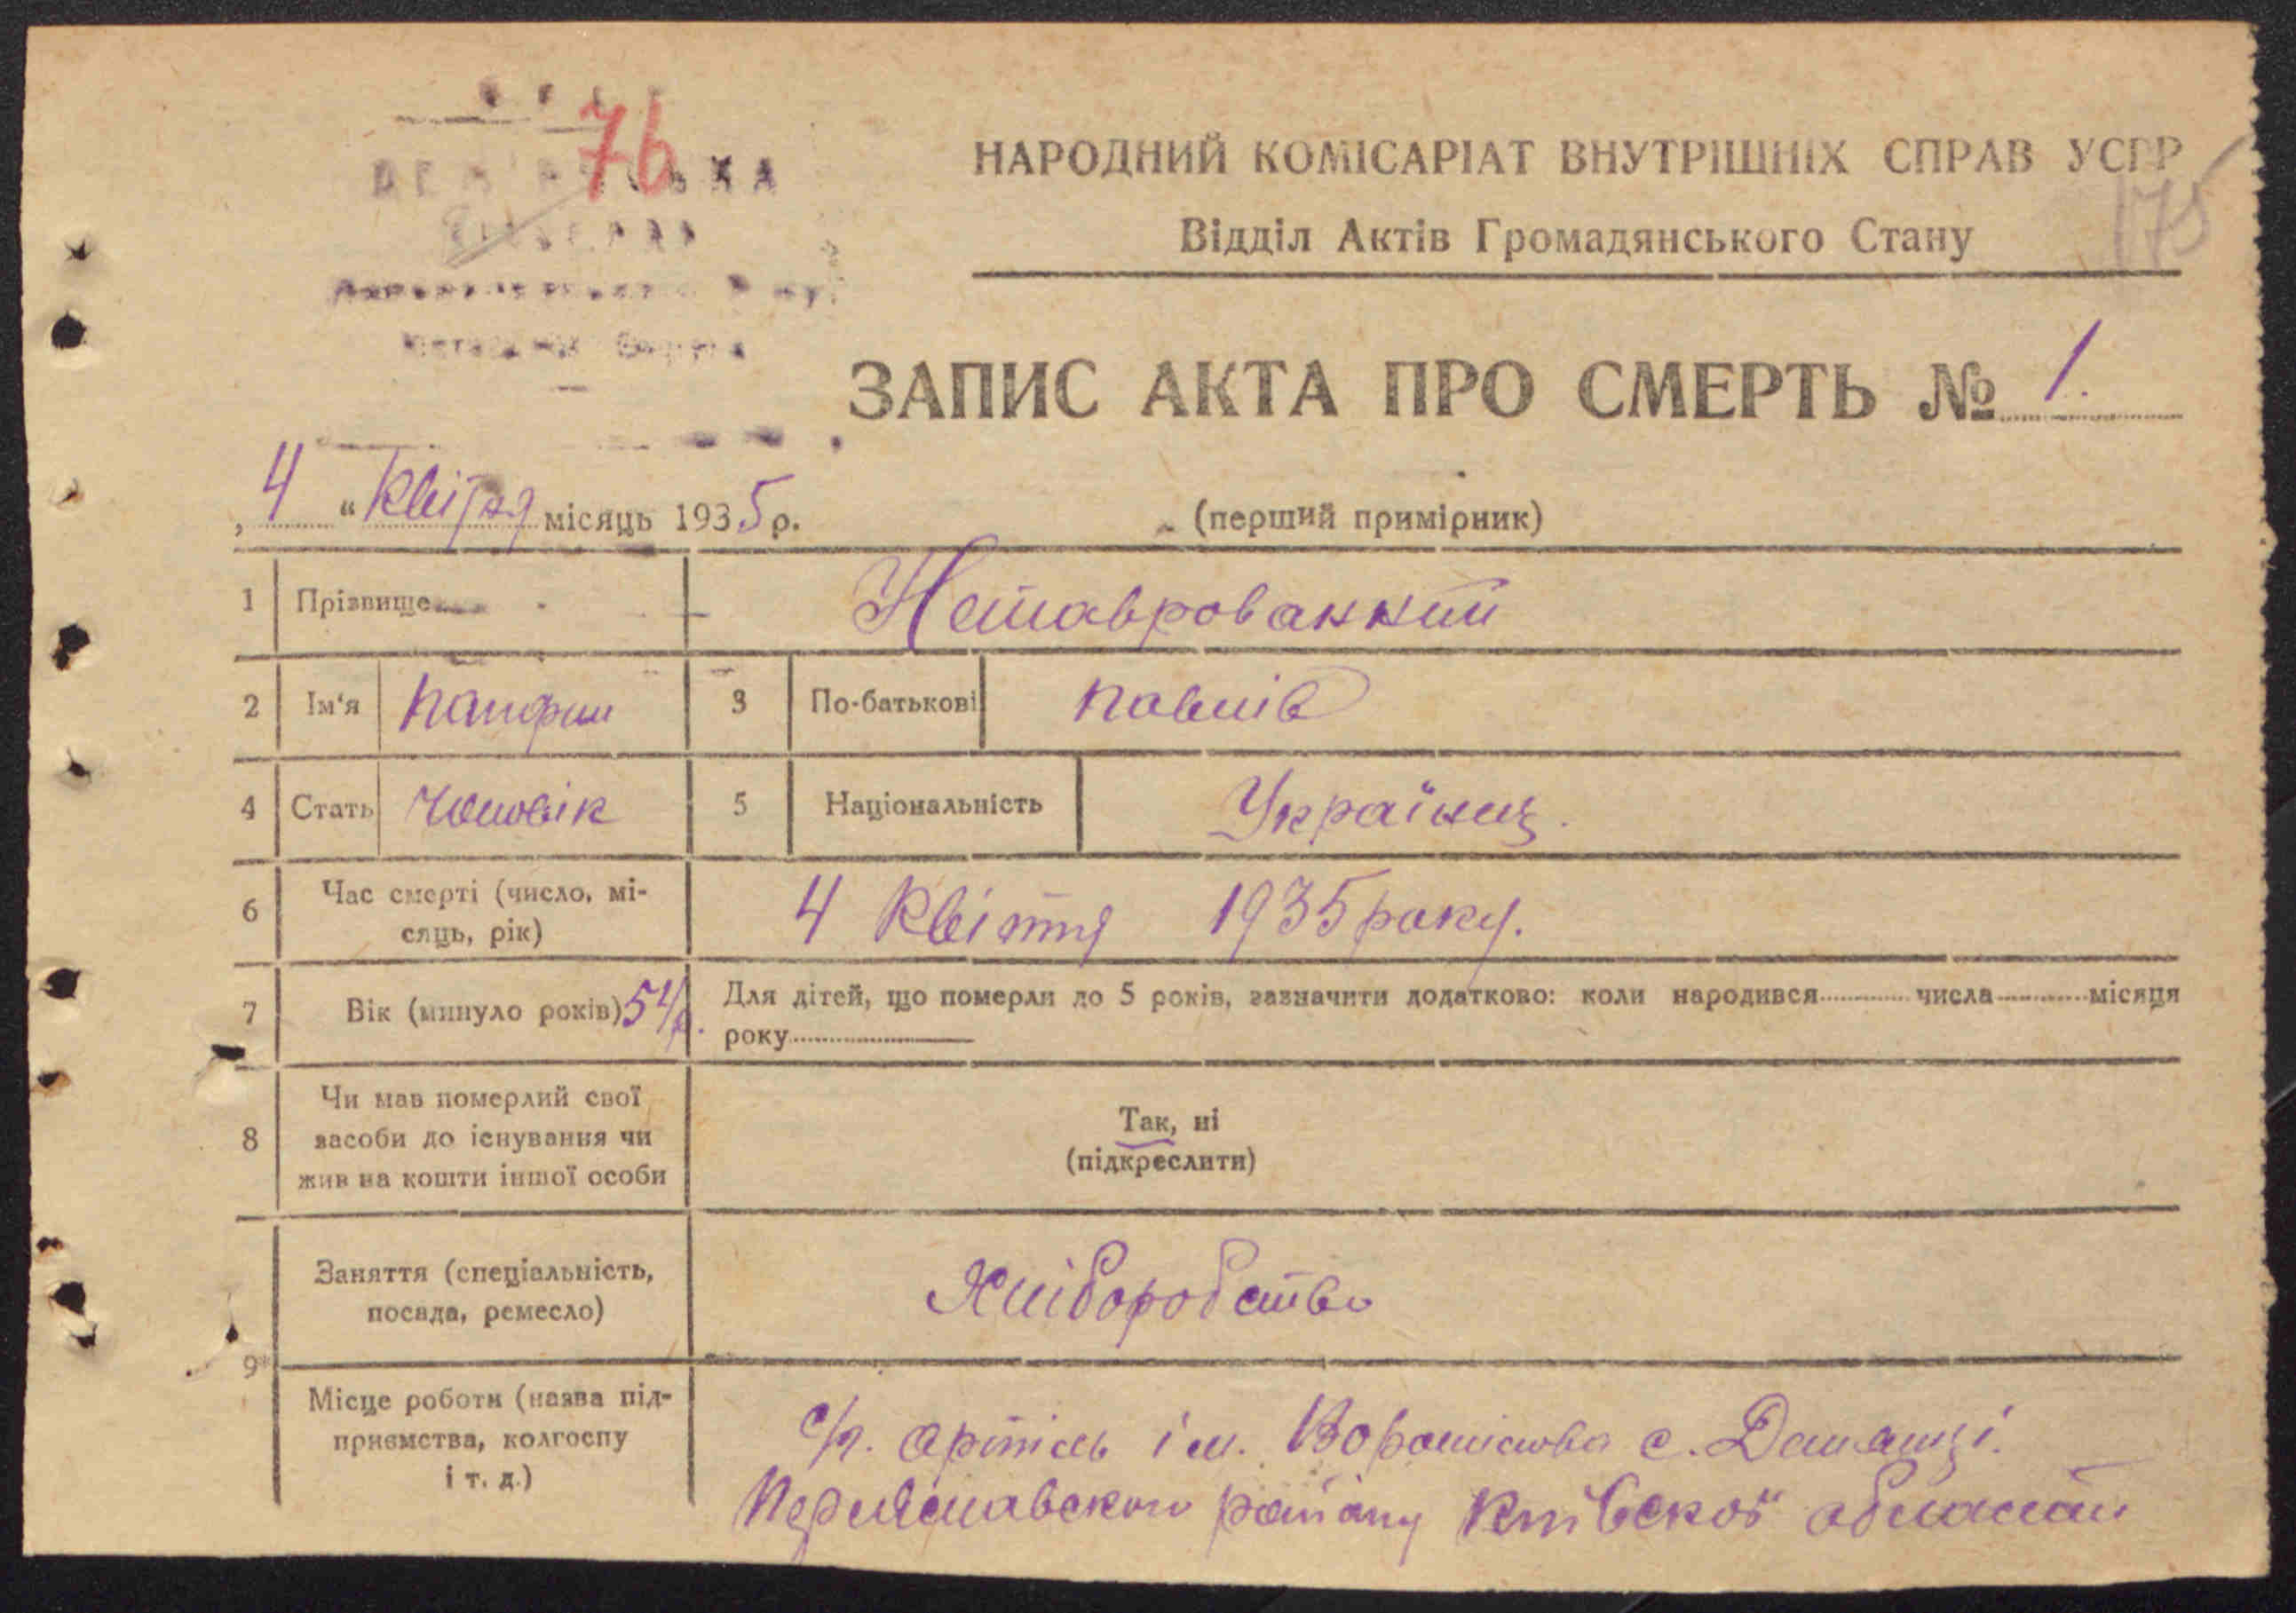 76
НАРОДНИЙ КОМІСАРІАТ ВНУТРІШНІХ СПРАВ УСРР
175
Відділ Актів Громадянського Стану
ЗАПИС АКТА ПРО СМЕРТЬ № 1.
„ 4 " Квітня місяць 1935 р.
(перший примірник)
1 Прізвище Нетаврований
2 Ім'я 3 По-батькові Павлів
4 Стать Чоловік 5 Національність Українец.
6 Час смерті (число, мі-
сяць, рік) 4 Квітня 1935 року.
7 Вік (минуло років) 54 р. Для дітей, що померли до 5 років, зазначити додатково: коли народився числа місяця
року
8 Чи мав померлий свої
засоби до існування чи
жив на кошти іншої особи
Так, ні
(підкреслити)
9* Заняття (спеціальність,
посада, ремесло) Хліборобство
Місце роботи (назва під-
приємства, колгоспу
і т. д.)
с/г. артіль ім. Ворошилова с.
Переяславского району Київскої области